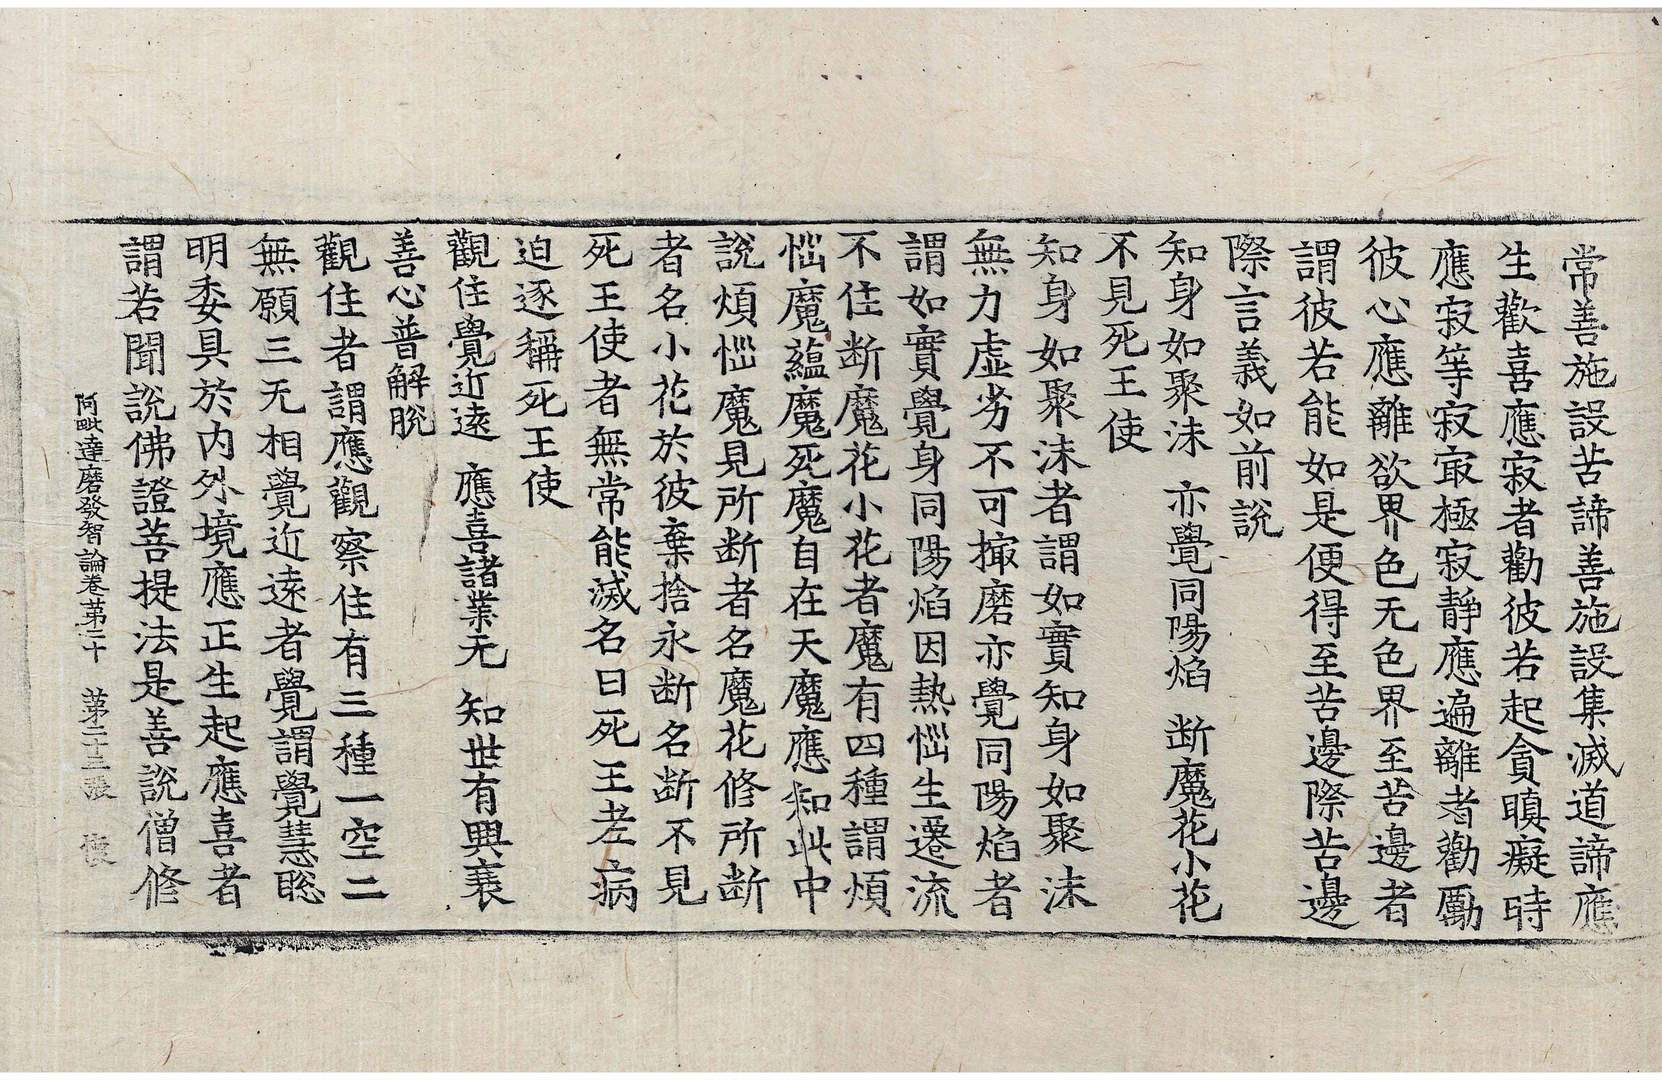 常善施設苦諦善施設集滅道諦應
生歡喜應寂者勸彼若起貪瞋癡時
應寂等寂寂㝡極寂靜應遍離者勸勵
彼心應離欲界色无色界至苦邊者
謂彼若能如是便得至苦邊際苦邊
際言義如前說
知身如聚沫　亦覺同陽焰　断魔花小花
不見死王使
知身如聚沫者謂如實知身如聚沫
無力虛劣不可撮磨亦覺同陽焰者
謂如實覺身同陽焰因熱惱生遷流
不住断魔花小花者魔有四種謂煩
惱魔蘊魔死魔自在天魔應知此中
說煩惱魔見所断者名魔花修所断
者名小花於彼棄捨永断名断不見
死王使者無常能滅名曰死王老病
迫逐稱死王使
觀住覺近遠　應喜諸業无　知世有興衰
善心普解脫
觀住者謂應觀察住有三種一空二
無願三无相覺近遠者覺謂覺慧聡
明委具於内外境應正生起應喜者
謂若聞說佛證菩提法是善說僧修
阿毗達磨發智論卷苐二十　苐二十三張　懷